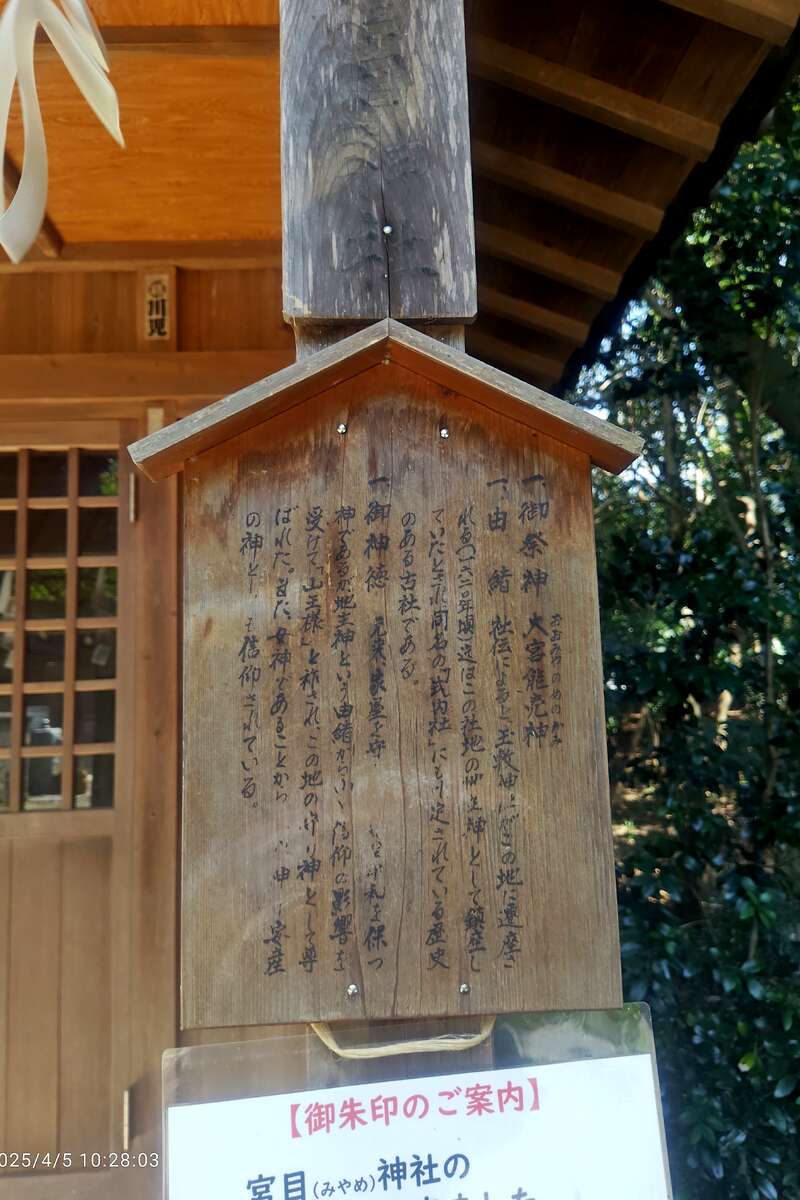 一、御祭神 大宮能売神
おおみやのめのかみ
一、由緒 社伝によると、玉敷神社がこの地に遷座さ
れる(一六二〇年頃)迄はこの社地の地主神として鎮座し
ていたとされ同名の「式内社」にも 定されている歴史
のある古社である。
一、御神徳 元来、家屋を守 を保つ
神であるが地主神という由緒から 信仰の影響を
受けて「山王様」と称され、この地の守り神として尊
ばれた。また、女神であることから 安産
の神として も信仰されている。
川児
【御朱印のご案内】
宮目(みやめ)神社の
025/4/5 10:28:03